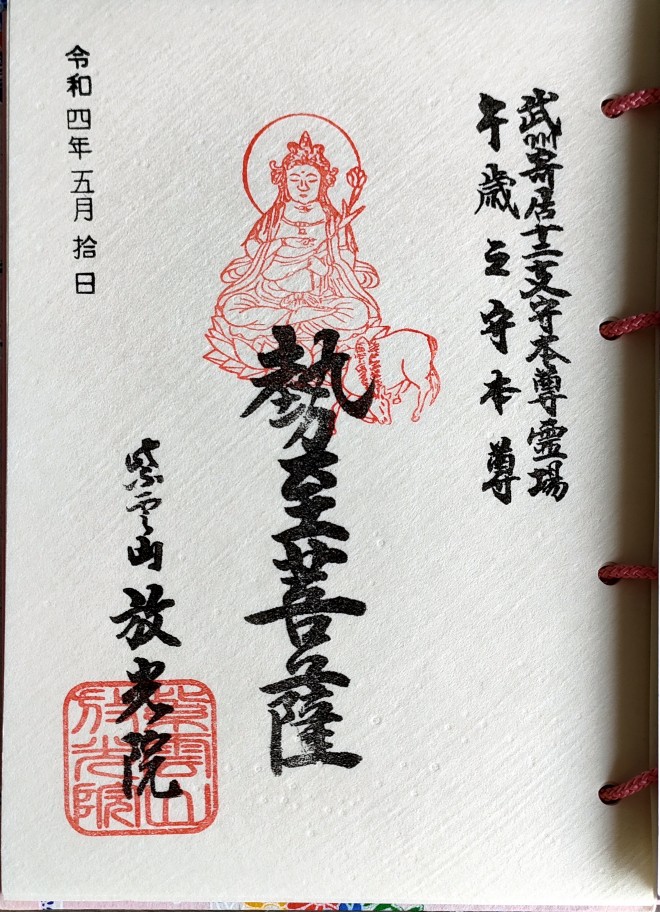 武州寄居十二支守本尊霊場
午歳之守本尊
勢至菩薩
紫雲山放光院
紫雲山
放光院
令和四年五月拾日